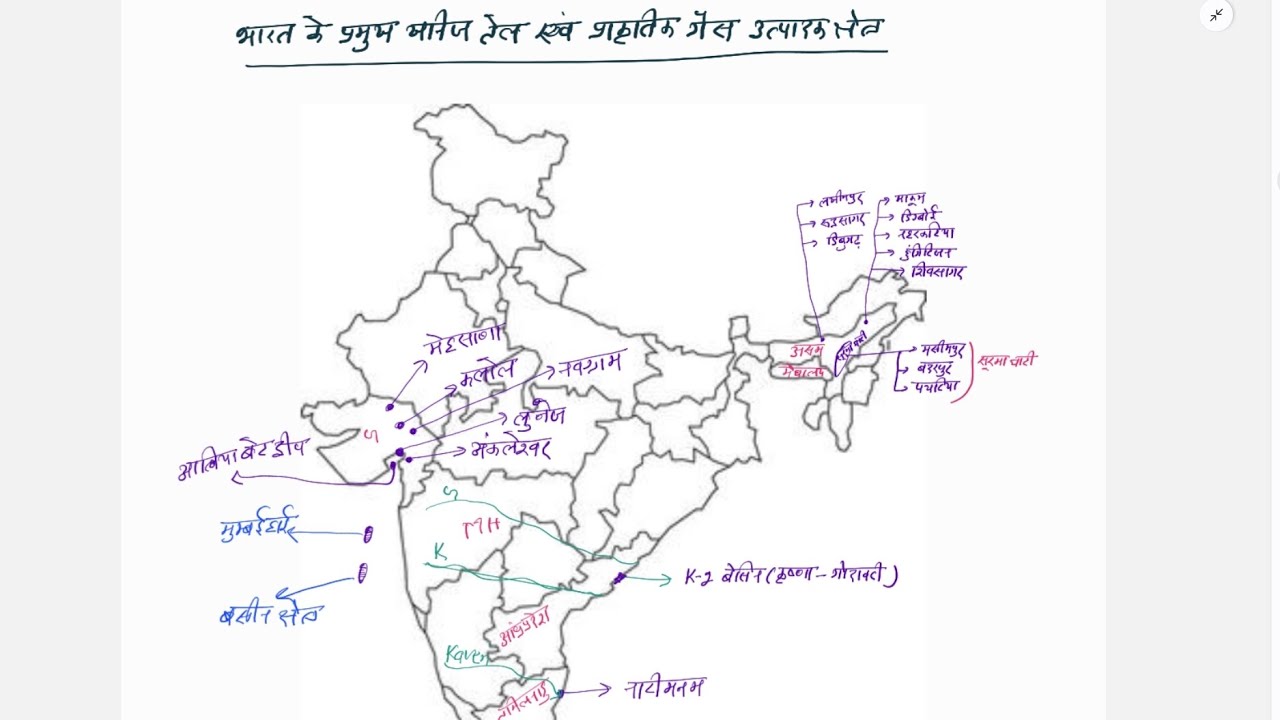 भारत के प्रमुख खनिज तेल एवं प्राकृतिक गैस उत्पादक क्षेत्र
लखीमपुर
रुद्रसागर
डिब्रुगढ़
माकूम
डिग्बोई
नहरकटिया
हुंगरिजन
शिवसागर
असम
मेघालय
मसीमपुर
बदरपुर
पथरिया
सूरमा घाटी
मेहसाणा
कलोल
नवग्राम
लुनेज
अंकलेश्वर
आलिया बेट द्वीप
मुम्बई हाई
बसीन क्षेत्र
G
MH
K
K-G बेसिन (कृष्णा - गोदावरी)
आंध्रप्रदेश
Kaveri
तमिलनाडु
नारीमनम